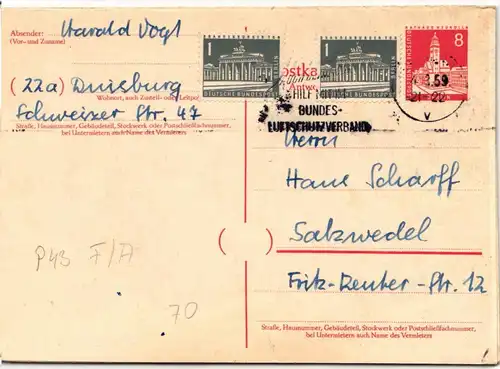 Absender:
(Vor- und Zuname)
Harald Vogl
(22a) Duisburg
Wohnort, auch Zustell- oder Leitpostamt
Schweizer Str. 47
Straße, Hausnummer, Gebäudeteil, Stockwerk oder Postschließfachnummer,
bei Untermietern auch Name des Vermieters
1
DEUTSCHE BUNDESPOST BERLIN
1
DEUTSCHE BUNDESPOST BERLIN
RATHAUS NEUKÖLLN
8
ostka
Antwo
59
21-22
V
BUNDES-
LUFTSCHUTZVERBAND
Herrn
Hans Scharff
Salzwedel
Fritz-Reuter-Str. 12
Straße, Hausnummer, Gebäudeteil, Stockwerk oder Postschließfachnummer,
bei Untermietern auch Name des Vermieters
P43 F/A
70